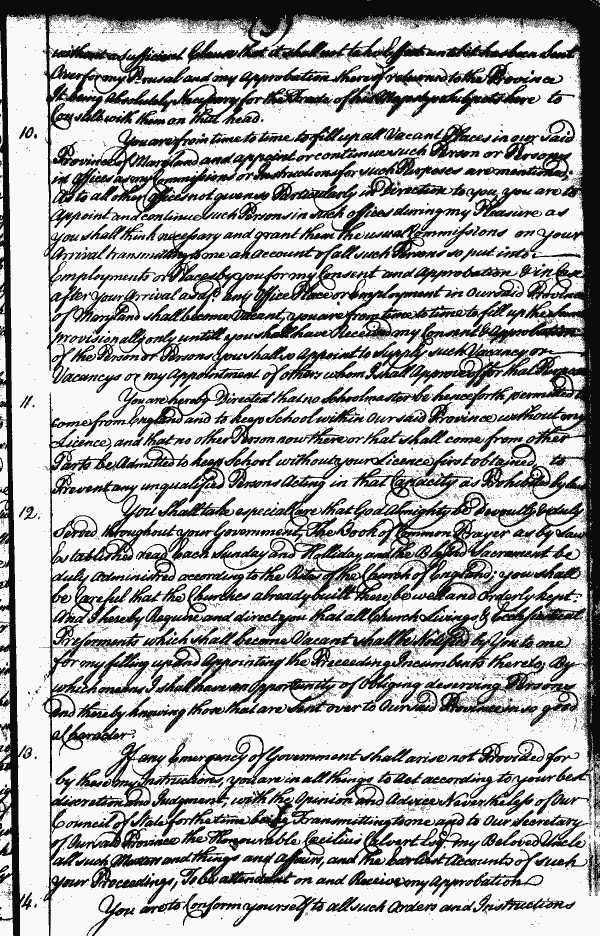 without a sufficient Clause that it shall not take Effect until it has been Sent
Over for my Perusal and my Approbation thereof returned to the Province
It being Absolutely Necessary for the Trade of his Majestys Subjects here to
Consult with them on that head.
10. You are from time to time to fill up all Vacant Places in our said
Province of Maryland and appoint or continue such Person or Persons
in offices as my Commissions or Instructions for such Purposes are mentioned.
As to all other Offices not given Particularly in Direction to you, you are to
Appoint and continue such Persons in such offices during my Pleasure as
you shall think necessary and grant them the usual Commissions on your
Arrival transmitting to me an Account of all such Persons so put into
Employments or Places by you for my Consent and Approbation & in Case
after your Arrival as afsd. any Office Place or Employment in Our said Province
of Maryland shall become Vacant, you are from time to time to fill up the same
provisionally only untill you shall have Received my Consent & Approbation
of the Person or Persons you shall so Appoint to Supply such Vacancy or
Vacancys or my Appointment of others whom I shall Approve of for that Purpose
11. You are hereby Directed that no Schoolmaster be henceforth permitted to
come from England and to keep School within Our said Province without my
Licence, and that no other Person now there or that shall come from other
Parts be Admitted to keep School without your Licence first obtained to
Prevent any unqualifyed Persons Acting in that Capacity as Prohibited by Law
12. You Shall take especial Care that God Almighty be Devoutly & duly
Served throughout your Government, The Book of Common Prayer as by Law
Established read each Sunday and Holliday and the Blessed Sacrament be
duly Administred according to the Rites of the Church of England, you shall
be Careful that the Churches already built there be well and Orderly kept.
And I hereby Require and direct you that all Church Livings & Ecclesiastical
Preferments which shall become Vacant shall be Notifyed by You to me
for my filling up and Appointing the Preceeding Incumbents thereto, By
which means I shall have an Opportunity of Obliging deserving Persons
and thereby knowing those that are Sent over to Our said Province in so good
a Character.
13. If any Emergency of Government shall arise not Provided for
by these my Instructions, you are in all things to Act according to your best
discretion and Judgment, with the Opinion and Advice Nevertheless of Our
Council of State for the time being Transmitting to me and to Our Secretary
of Our said Province the Honourable Cecilius Calvert Esqr. my Beloved Uncle
all such Matters and things and Affairs, and the Earliest Accounts of such
your Proceedings, To be attendant on and Receive my Approbation
14. You are to Conform yourself to all such Orders and Instructions